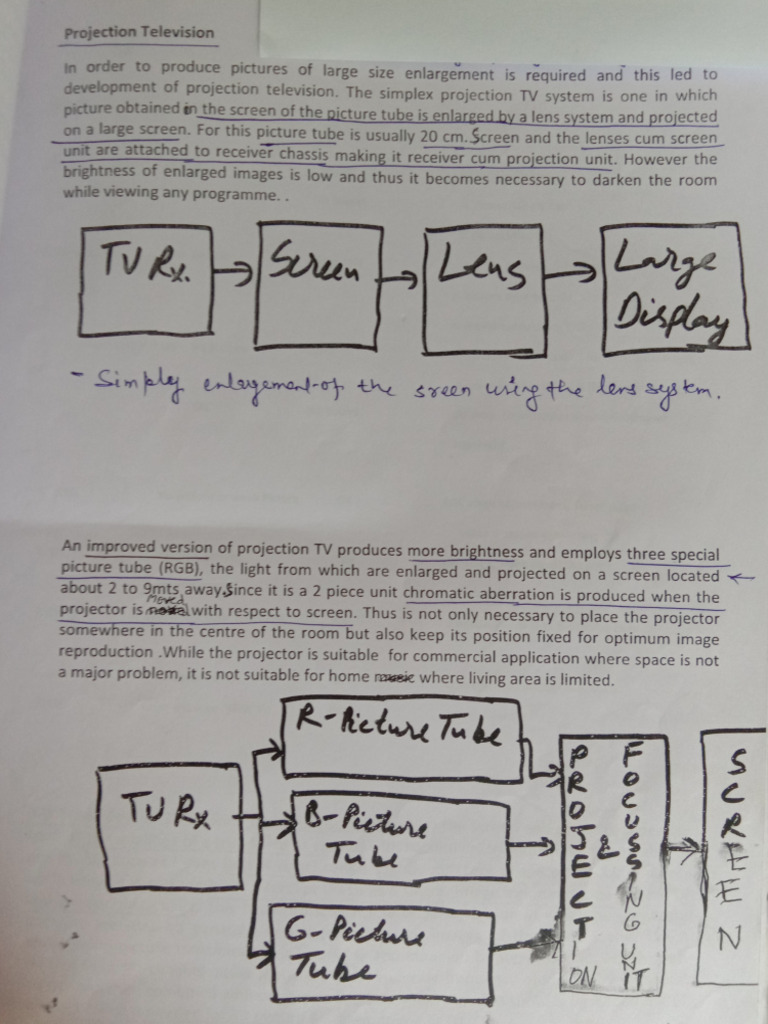 Projection Television
In order to produce pictures of large size enlargement is required and this led to
development of projection television. The simplex projection TV system is one in which
picture obtained in the screen of the picture tube is enlarged by a lens system and projected
on a large screen. For this picture tube is usually 20 cm. Screen and the lenses cum screen
unit are attached to receiver chassis making it receiver cum projection unit. However the
brightness of enlarged images is low and thus it becomes necessary to darken the room
while viewing any programme. .
TV Rx.
Screen
Lens
Large
Display
- Simply enlargement of the sreen using the lens system.
An improved version of projection TV produces more brightness and employs three special
picture tube (RGB), the light from which are enlarged and projected on a screen located
about 2 to 9mts away. Since it is a 2 piece unit chromatic aberration is produced when the
projector is moved with respect to screen. Thus is not only necessary to place the projector
somewhere in the centre of the room but also keep its position fixed for optimum image
reproduction .While the projector is suitable for commercial application where space is not
a major problem, it is not suitable for home where living area is limited.
TV Rx
R-Picture Tube
B-Picture
Tube
G-Picture
Tube
PROJECTION
&
FOCUSSING UNIT
SCREEN